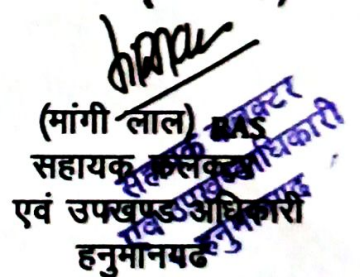 (मांगी लाल) RAS
सहायक कलेक्टर
एवं उपखण्ड अधिकारी
हनुमानगढ
सहायक कलेक्टर
एवं उपखण्ड अधिकारी
हनुमानगढ